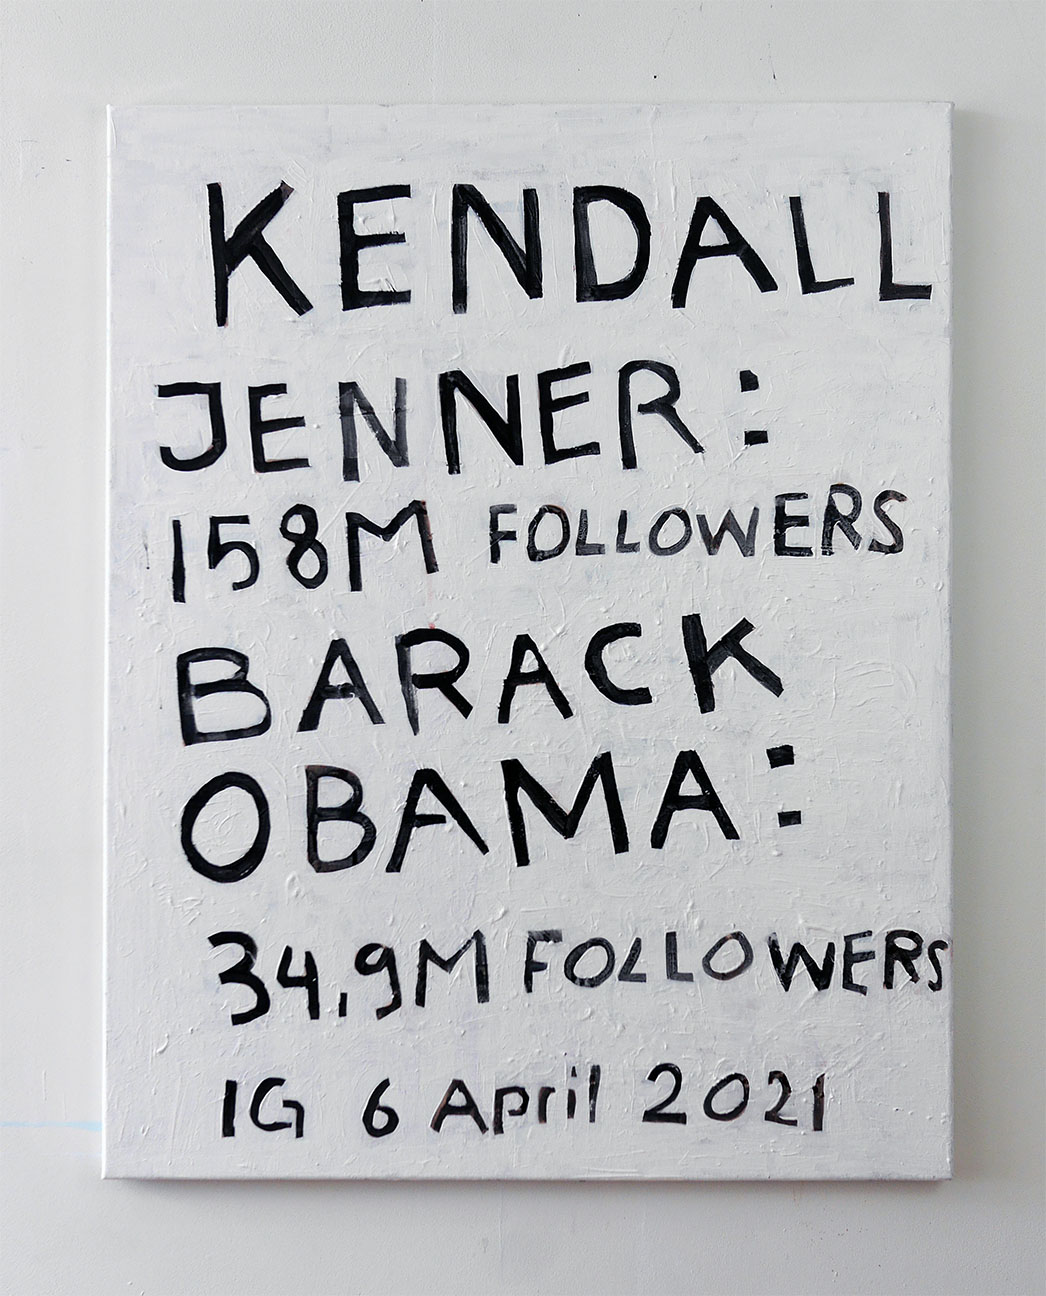 KENDALL
JENNER:
158M FOLLOWERS
BARACK
OBAMA:
34,9M FOLLOWERS
IG 6 April 2021